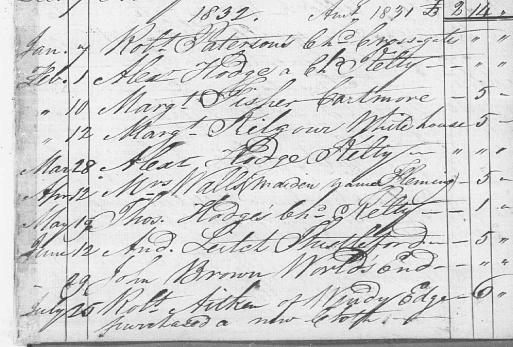 1832. Amt. 1831 £ 2 14 "
Jan. 7 Robt Paterson's Chd Crossgates " "
Feb. 1 Alexr Hodge a Chd Kelty " "
" 10 Margt Fisher Cartmore - 5 -
" 12 Margt Kilgour Whitehouse 5 -
Mar 28 Alexr Hodge Kelty - " "
Apr 12 Mrs Walls (Maiden name Fleming) - 5 -
May 19 Thos. Hodge's Chd Kelty - - 1 "
June 12 And. Leitch Thistleford - - 5 "
- 29 John Brown World's End - - " "
July 25 Robt Aitken of Windy Edge - 6 "
purchased a new Cloth - -